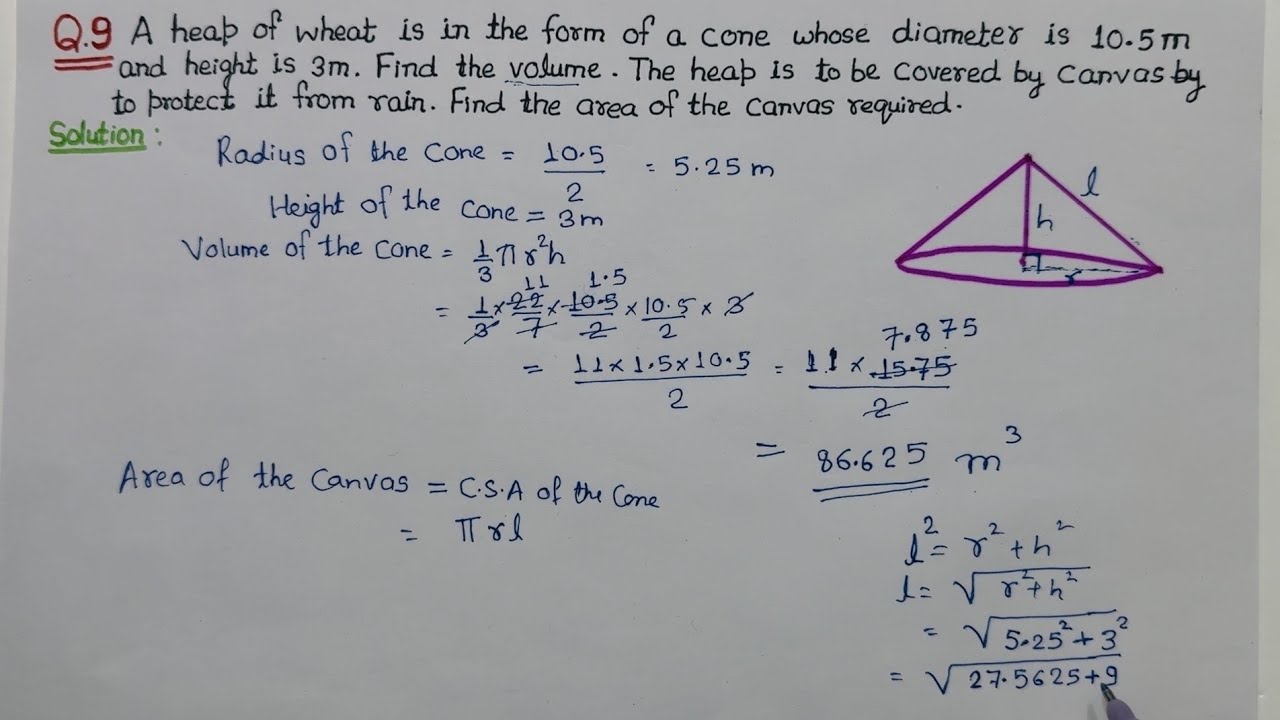 Q.9 A heap of wheat is in the form of a cone whose diameter is 10.5m
and height is 3m. Find the volume. The heap is to be covered by canvas by
to protect it from rain. Find the area of the canvas required.
Solution:
Radius of the cone = 10.5/2 = 5.25 m
Height of the cone = 3m
Volume of the cone = 1/3 πr²h
11 1.5
= 1/3 × 22/7 × 10.5/2 × 10.5/2 × 3
7.875
= 11×1.5×10.5/2 = 11 × 15.75/2
= 86.625 m³
Area of the canvas = C.S.A of the cone
= πrl
l
h
r
l² = r² + h²
l = √r²+h²
= √5.25²+3²
= √27.5625+9